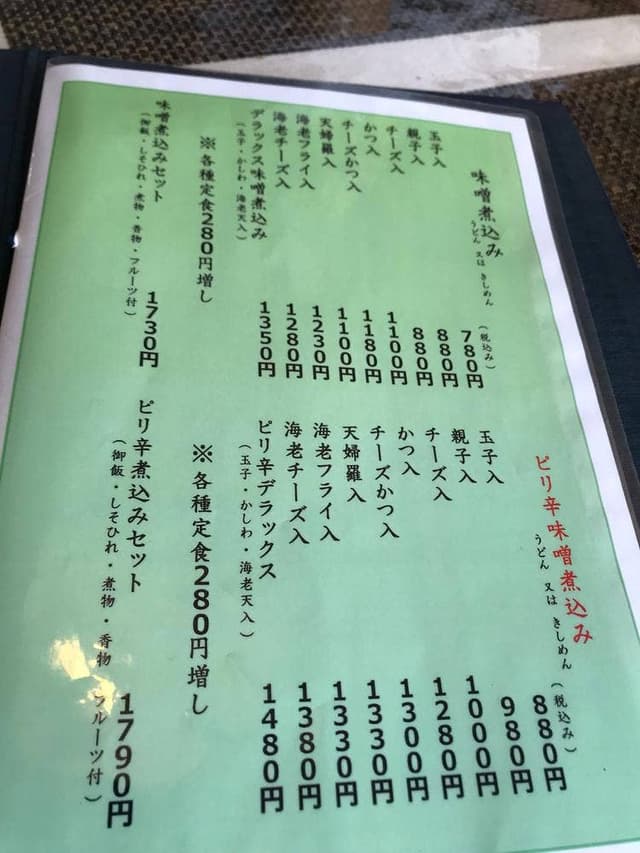 味噌煮込み
うどん 又は きしめん
(税込み)
玉子入 780円
親子入 880円
チーズ入 880円
かつ入 1100円
チーズかつ入 1180円
天婦羅入 1100円
海老フライ入 1230円
海老チーズ入 1280円
デラックス味噌煮込み 1350円
(玉子・かしわ・海老天入)
※各種定食280円増し
味噌煮込みセット 1730円
(御飯・しそひれ・煮物・香物・フルーツ付)
ピリ辛味噌煮込み
うどん 又は きしめん
(税込み)
玉子入 880円
親子入 980円
チーズ入 1000円
かつ入 1280円
チーズかつ入 1300円
天婦羅入 1330円
海老フライ入 1330円
海老チーズ入 1380円
ピリ辛デラックス 1480円
(玉子・かしわ・海老天入)
※各種定食280円増し
ピリ辛煮込みセット 1790円
(御飯・しそひれ・煮物・香物 フルーツ付)